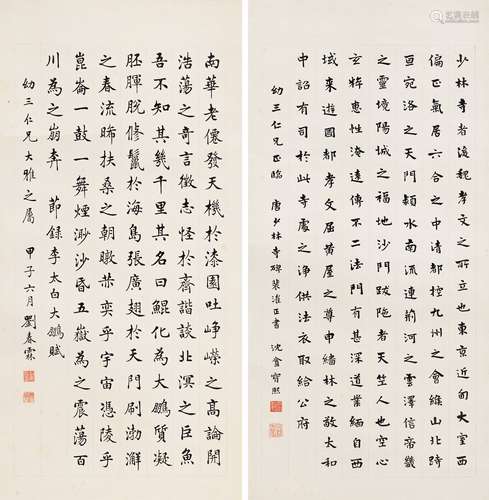 少林寺者後魏孝文之所立也東京近甸大室西
偏正氣居六合之中清都控九州之會緱山北跱
亘宛洛之天門潁水南流連荊河之雲澤信帝畿
之靈境陽城之福地沙門跋陁者天竺人也空心
玄粹惠性淹遠傳不二法門有甚深道業緬自西
域來遊國都孝文屈黃屋之尊申緇林之敬太和
中詔有司於此寺處之淨供法衣取給公府
幼三仁兄正臨 唐少林寺碑裴漼正書 沈盦寶熙
南華老僊發天機於漆園吐崢嶸之高論開
浩蕩之奇言徵志怪於齊諧談北溟之巨魚
吾不知其幾千里其名曰鯤化為大鵬質凝
胚腪脫修鬣於海島張廣翅於天門刷渤澥
之春流晞扶桑之朝暾奕乎宇宙憑陵乎
崑崙一鼓一舞煙渺沙昏五嶽為之震蕩百
川為之崩奔 節錄李太白大鵬賦
幼三仁兄大雅之屬 甲子六月劉春霖